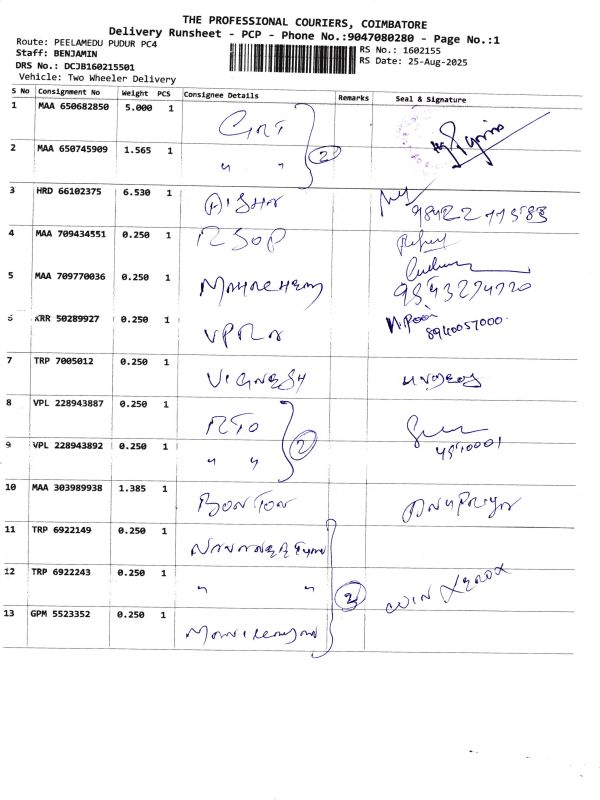 THE PROFESSIONAL COURIERS, COIMBATORE
Delivery Runsheet - PCP - Phone No.:9047080280 - Page No.:1
Route: PEELAMEDU PUDUR PC4
Staff: BENJAMIN
DRS No.: DCJB160215501
Vehicle: Two Wheeler Delivery
RS No.: 1602155
RS Date: 25-Aug-2025
S No Consignment No Weight PCS Consignee Details Remarks Seal & Signature
1 MAA 650682850 5.000 1 GRT
2 MAA 650745909 1.565 1 " " 2
3 HRD 66102375 6.530 1
4 MAA 709434551 0.250 1 RSOP
5 MAA 709770036 0.250 1 9843274720
6 KRR 50289927 0.250 1 8940057000
7 TRP 7005012 0.250 1 VIGNESH
8 VPL 228943887 0.250 1 RTO
9 VPL 228943892 0.250 1 " " 2
10 MAA 303989938 1.385 1 BONTON
11 TRP 6922149 0.250 1
12 TRP 6922243 0.250 1 " " WIN XEROX
13 GPM 5523352 0.250 1